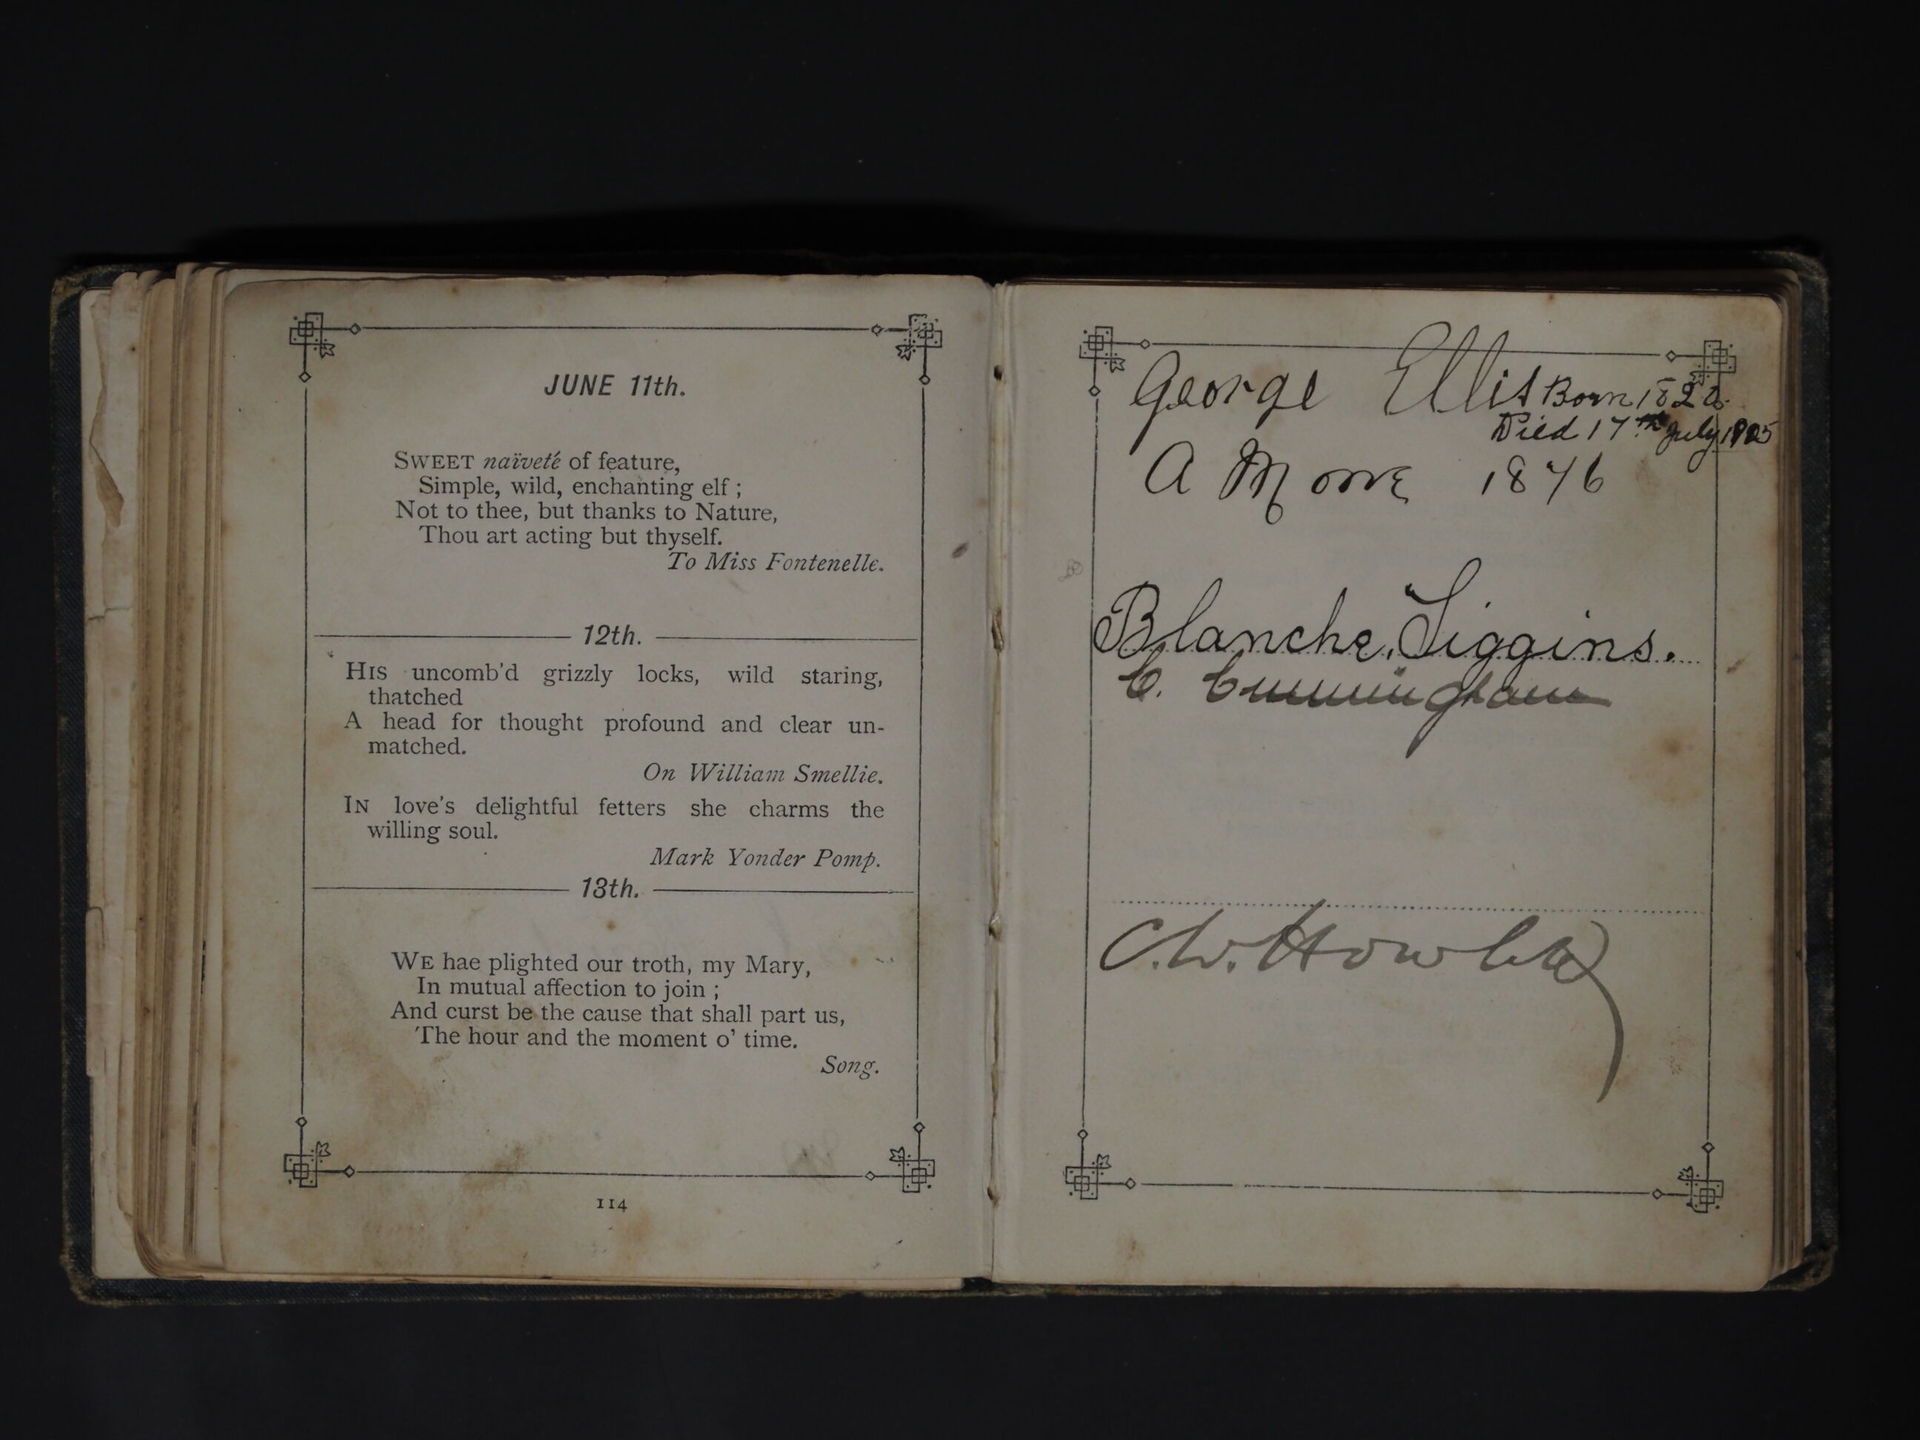 JUNE 11th.
SWEET naïveté of feature,
Simple, wild, enchanting elf ;
Not to thee, but thanks to Nature,
Thou art acting but thyself.
To Miss Fontenelle.
12th.
HIS uncomb'd grizzly locks, wild staring,
thatched
A head for thought profound and clear un-
matched.
On William Smellie.
IN love's delightful fetters she charms the
willing soul.
Mark Yonder Pomp.
13th.
WE hae plighted our troth, my Mary,
In mutual affection to join ;
And curst be the cause that shall part us,
The hour and the moment o' time.
Song.
114
George Ellis Born
Died 17th July
A 1876
Blanche Siggins.
C. Cunningham
C. W.